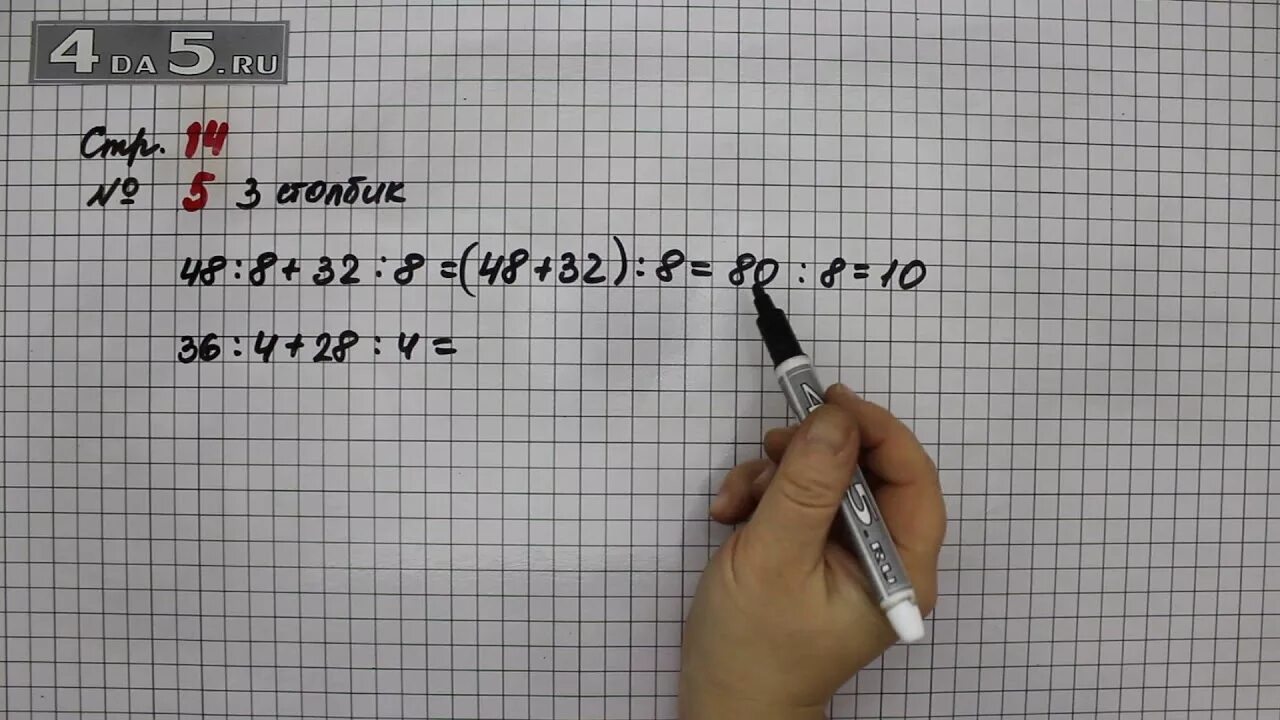 4 DA 5.RU
Стр. 14
№ 5 3 столбик
48 : 8 + 32 : 8 = (48 + 32) : 8 = 80 : 8 = 10
36 : 4 + 28 : 4 =
4
5.RU